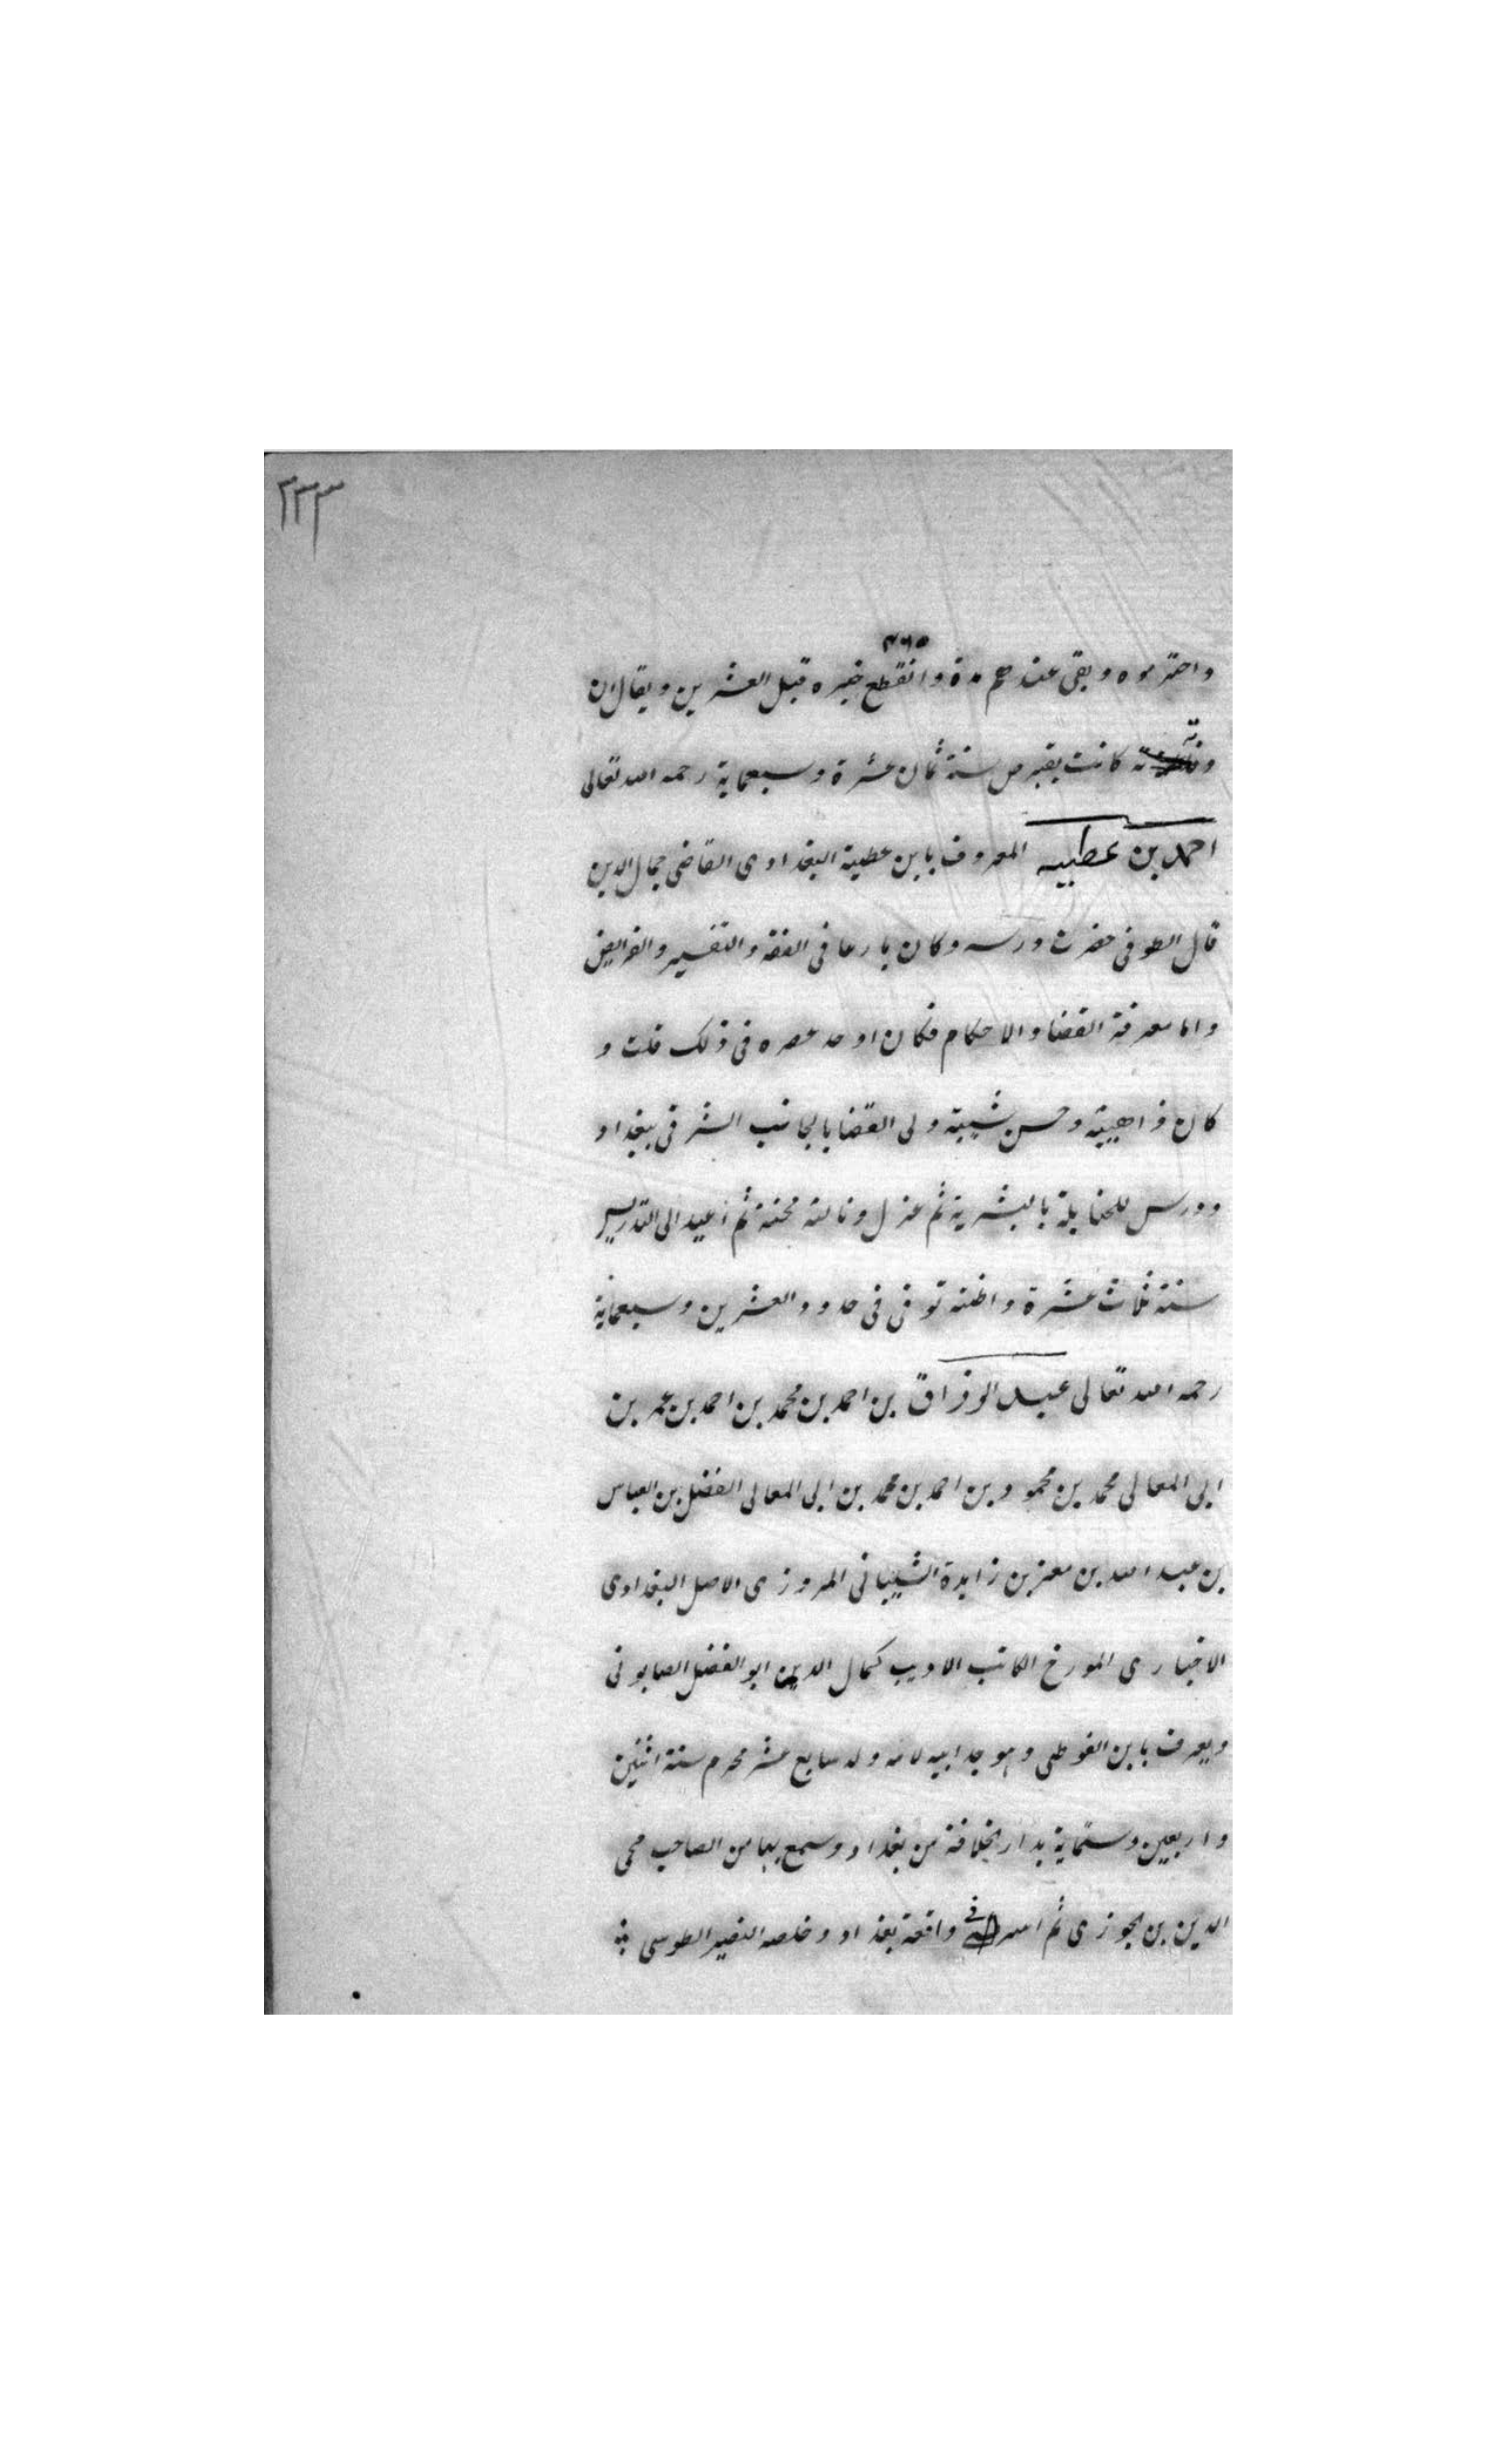 ٢٣٣
٤٦٥
واحترموه وبقى عندهم مدة وانقطع خبره قبل العشرين ويقال ان
وفاته كانت بقبرص سنة ثمان عشرة وسبعماية رحمه الله تعالى
احمد بن عطيه المعروف بابن عطية البغدادى القاضى جمال الدين
قال الطوفى حضرت درسه وكان بارعا فى الفقه والتفسير والفرايض
واما معرفة القضا والاحكام فكان اوحد عصره فى ذلك قلت و
كان ذا هيبة وحسن شيبة ولى القضا بالجانب الشرقى ببغداد
ودرس للحنابلة بالبشرية ثم عزل ونالته محنة ثم اعيد الى التدريس
سنة ثلاث عشرة واظنه توفى فى حدود العشرين وسبعماية
رحمه الله تعالى عبد الرزاق بن احمد بن محمد بن احمد بن عمر بن
ابى المعالى محمد بن محمود بن احمد بن محمد بن ابى المعالى الفضل بن العباس
بن عبد الله بن معن بن زايدة الشيبانى المروزى الاصل البغدادى
الاخبارى المورخ الكاتب الاديب كمال الدين ابو الفضل الصابونى
ويعرف بابن الفوطى وهو جد ابيه لامه ولد سابع عشر محرم سنة اثنين
واربعين وستماية بدار الخلافة من بغداد وسمع بها من الصاحب محى
الدين بن الجوزى ثم اسر فى واقعة بغداد وخلصه النصير الطوسى